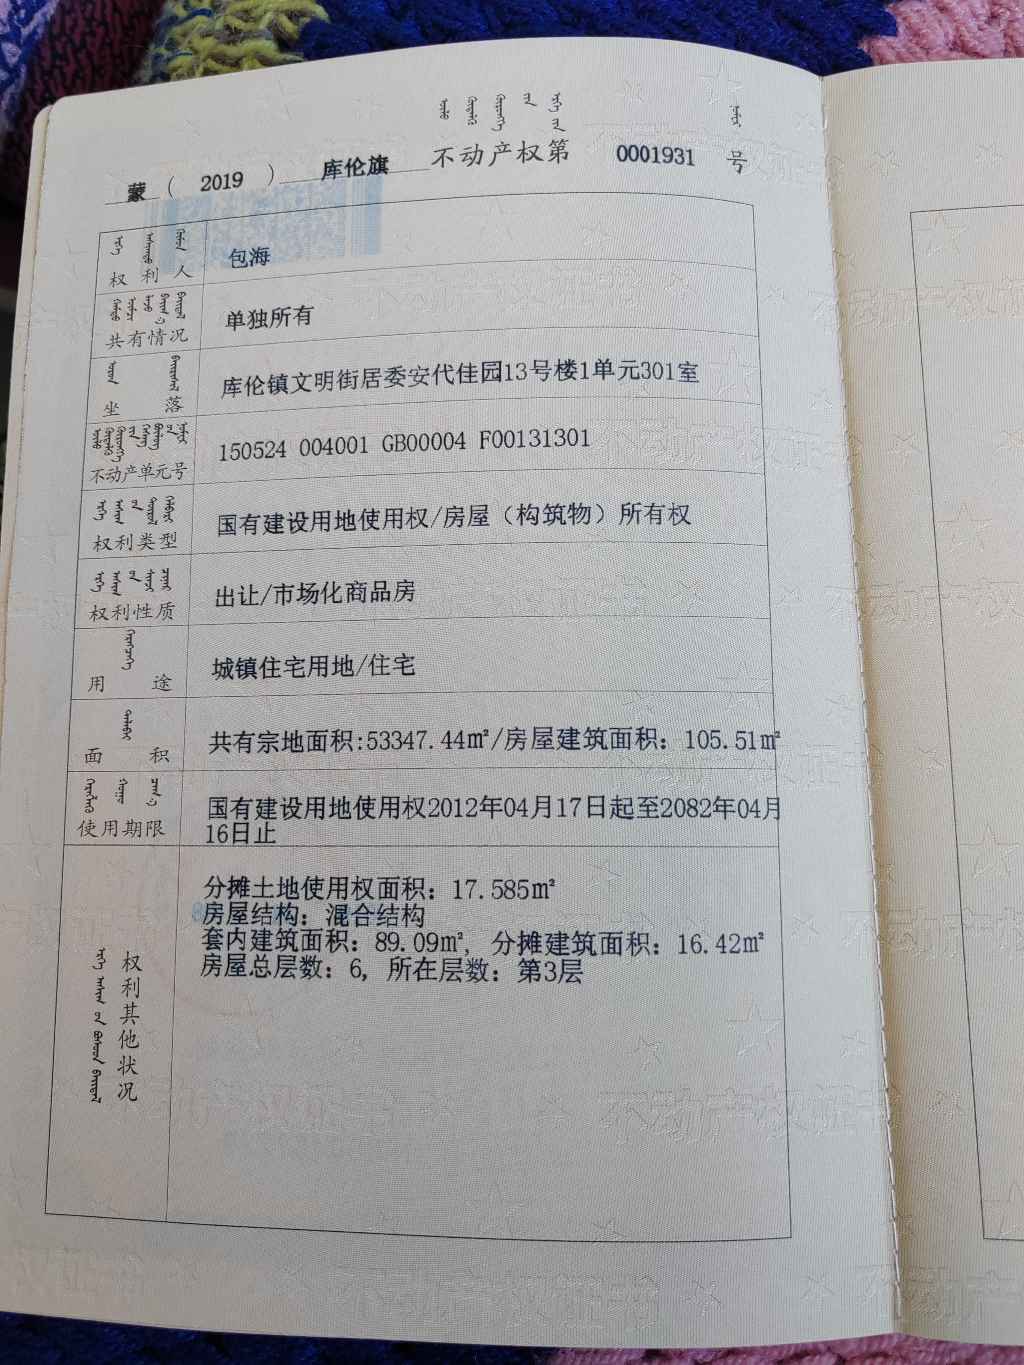 蒙（2019）库伦旗不动产权第0001931号
权利人 包海
共有情况 单独所有
坐落 库伦镇文明街居委安代佳园13号楼1单元301室
不动产单元号 150524 004001 GB00004 F00131301
权利类型 国有建设用地使用权/房屋（构筑物）所有权
权利性质 出让/市场化商品房
用途 城镇住宅用地/住宅
面积 共有宗地面积:53347.44㎡/房屋建筑面积：105.51㎡
使用期限 国有建设用地使用权2012年04月17日起至2082年04月
16日止
权利其他状况
分摊土地使用权面积：17.585㎡
房屋结构：混合结构
套内建筑面积：89.09㎡, 分摊建筑面积：16.42㎡
房屋总层数：6, 所在层数：第3层